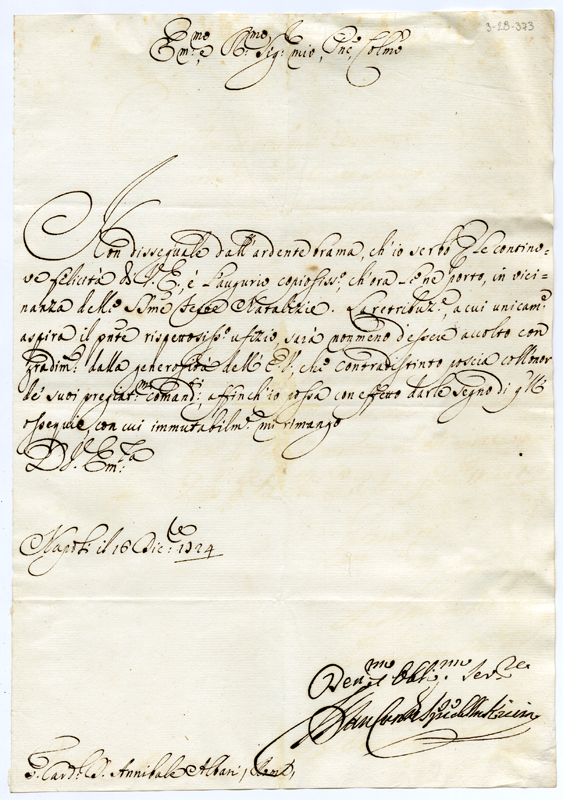 3-18-373
Em.mo e R.mo Sig.r mio, Pne, Colmo
Non disseguale dall'ardente brama, ch'io serbo p le contino-
ve felicità di V.E., è l'augurio copiosiss.o ch'ora le ne porto, in vici-
nanza delle SSme Feste Natalizie. La retribuz.e, a cui unicam.e
aspira il pnte rispettosiss.o ufizio, sarà nonmeno d'essere accolto con
gradim.o dalla generosità dell'E.V., che contradistinto poscia coll'onor
de' suoi pregiat.mi comandi, affinch'io possa con effetto darle segno di qll'
ossequio con cui immutabilm.e mi rimango
D. V. Em.za
Napoli il 16 Dic.e 1724
Dev.mo Obblig.mo Serv.re
S. Card.l D. Annibale Albani, Roma,